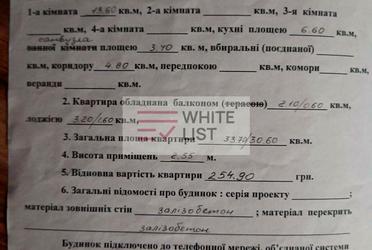 1-а кімната 13.60 кв.м, 2-а кімната кв.м, 3-я кімната
кв.м, 4-а кімната кв.м, кухні площею 6.60 кв.м,
санвузла
ванної кімнати площею 3,40 кв. м, вбиральні (поєднаної)
кв.м, коридору 4.80 кв.м, передпокою кв.м, комори кв.м,
веранди кв.м.
2. Квартира обладнана балконом (терасою) 2.10/0.60 кв.м,
лоджією 3.20/1.60 кв.м.
WHITE
LIST
3. Загальна площа квартири 33.70/30.60 кв.м.
4. Висота приміщень 2.55 м.
5. Відновна вартість квартири 254.90 грн.
6. Загальні відомості про будинок : серія проекту ;
матеріал зовнішніх стін залізобетон ; матеріал перекрить
залізобетон
Будинок підключено до телефонної мережі, об'єднаної системи